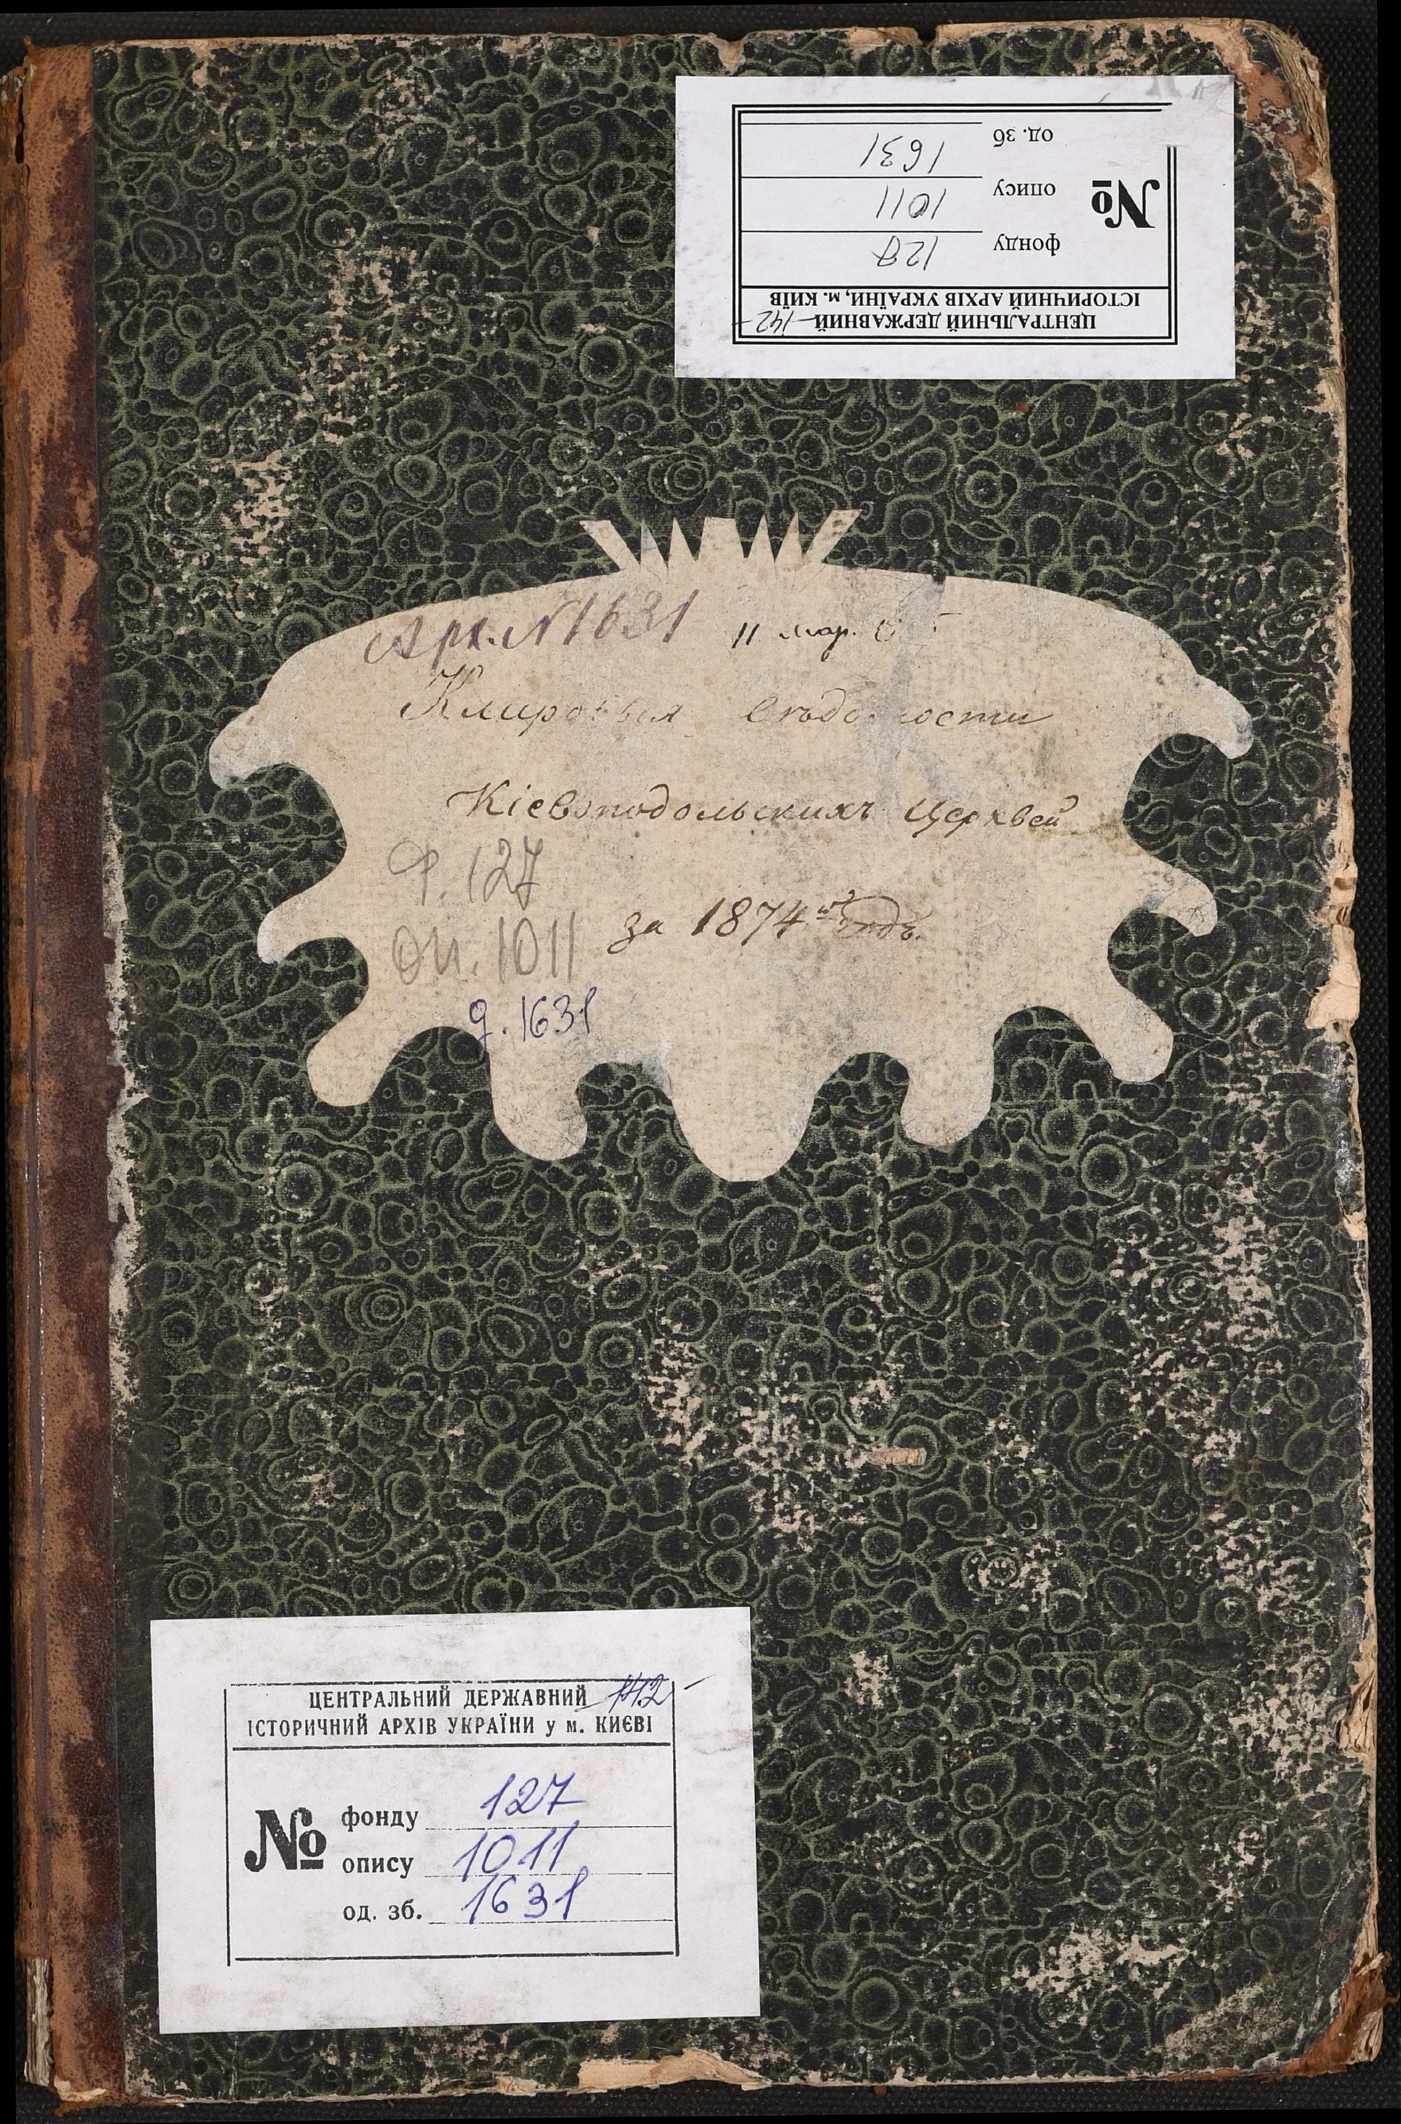 ЦЕНТРАЛЬНИЙ ДЕРЖАВНИЙ -142-
ІСТОРИЧНИЙ АРХІВ УКРАЇНИ, м. КИЇВ
№
фонду 127
опису 1011
од. зб 1631
Арх. №1631 11 мар.
Клировыя Вѣдомости
Кіевоподольскихъ Церквей
Ф. 127
за 1874й годъ.
Оп. 1011
д. 1631
ЦЕНТРАЛЬНИЙ ДЕРЖАВНИЙ -142-
ІСТОРИЧНИЙ АРХІВ УКРАЇНИ у м. КИЄВІ
№
фонду 127
опису 1011
од. зб. 1631